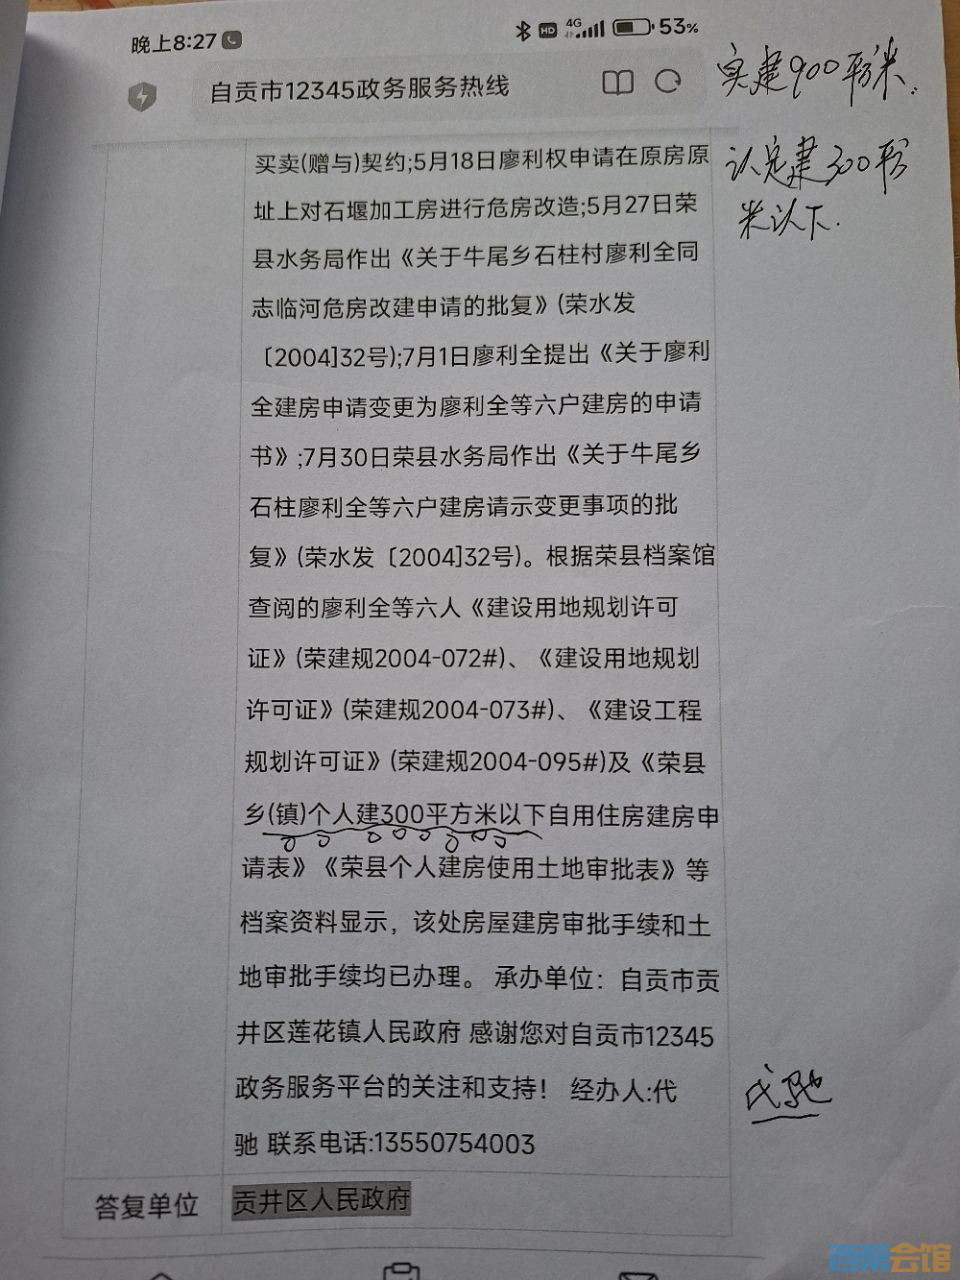 晚上8:27
HD
4G
53%
自贡市12345政务服务热线
实建900平方米.
买卖(赠与)契约;5月18日廖利权申请在原房原
认定建300平方
址上对石堰加工房进行危房改造;5月27日荣
米以下.
县水务局作出《关于牛尾乡石柱村廖利全同
志临河危房改建申请的批复》(荣水发
〔2004]32号);7月1日廖利全提出《关于廖利
全建房申请变更为廖利全等六户建房的申请
书》;7月30日荣县水务局作出《关于牛尾乡
石柱廖利全等六户建房请示变更事项的批
复》(荣水发〔2004]32号)。根据荣县档案馆
查阅的廖利全等六人《建设用地规划许可
证》(荣建规2004-072#)、《建设用地规划
许可证》(荣建规2004-073#)、《建设工程
规划许可证》(荣建规2004-095#)及《荣县
乡(镇)个人建300平方米以下自用住房建房申
请表》《荣县个人建房使用土地审批表》等
档案资料显示，该处房屋建房审批手续和土
地审批手续均已办理。 承办单位：自贡市贡
井区莲花镇人民政府 感谢您对自贡市12345
政务服务平台的关注和支持！ 经办人:代
代驰
驰 联系电话:13550754003
答复单位 贡井区人民政府
西秦会馆